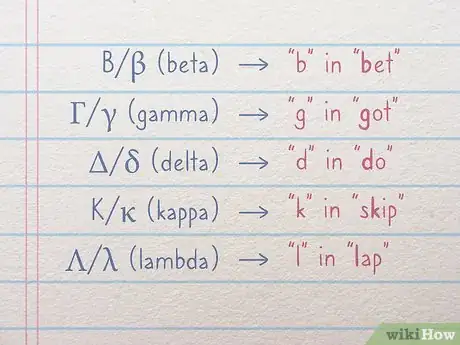 Β/β (beta) → "b" in "bet"
Γ/γ (gamma) → "g" in "got"
Δ/δ (delta) → "d" in "do"
Κ/κ (kappa) → "k" in "skip"
Λ/λ (lambda) → "l" in "lap"
wikiHow